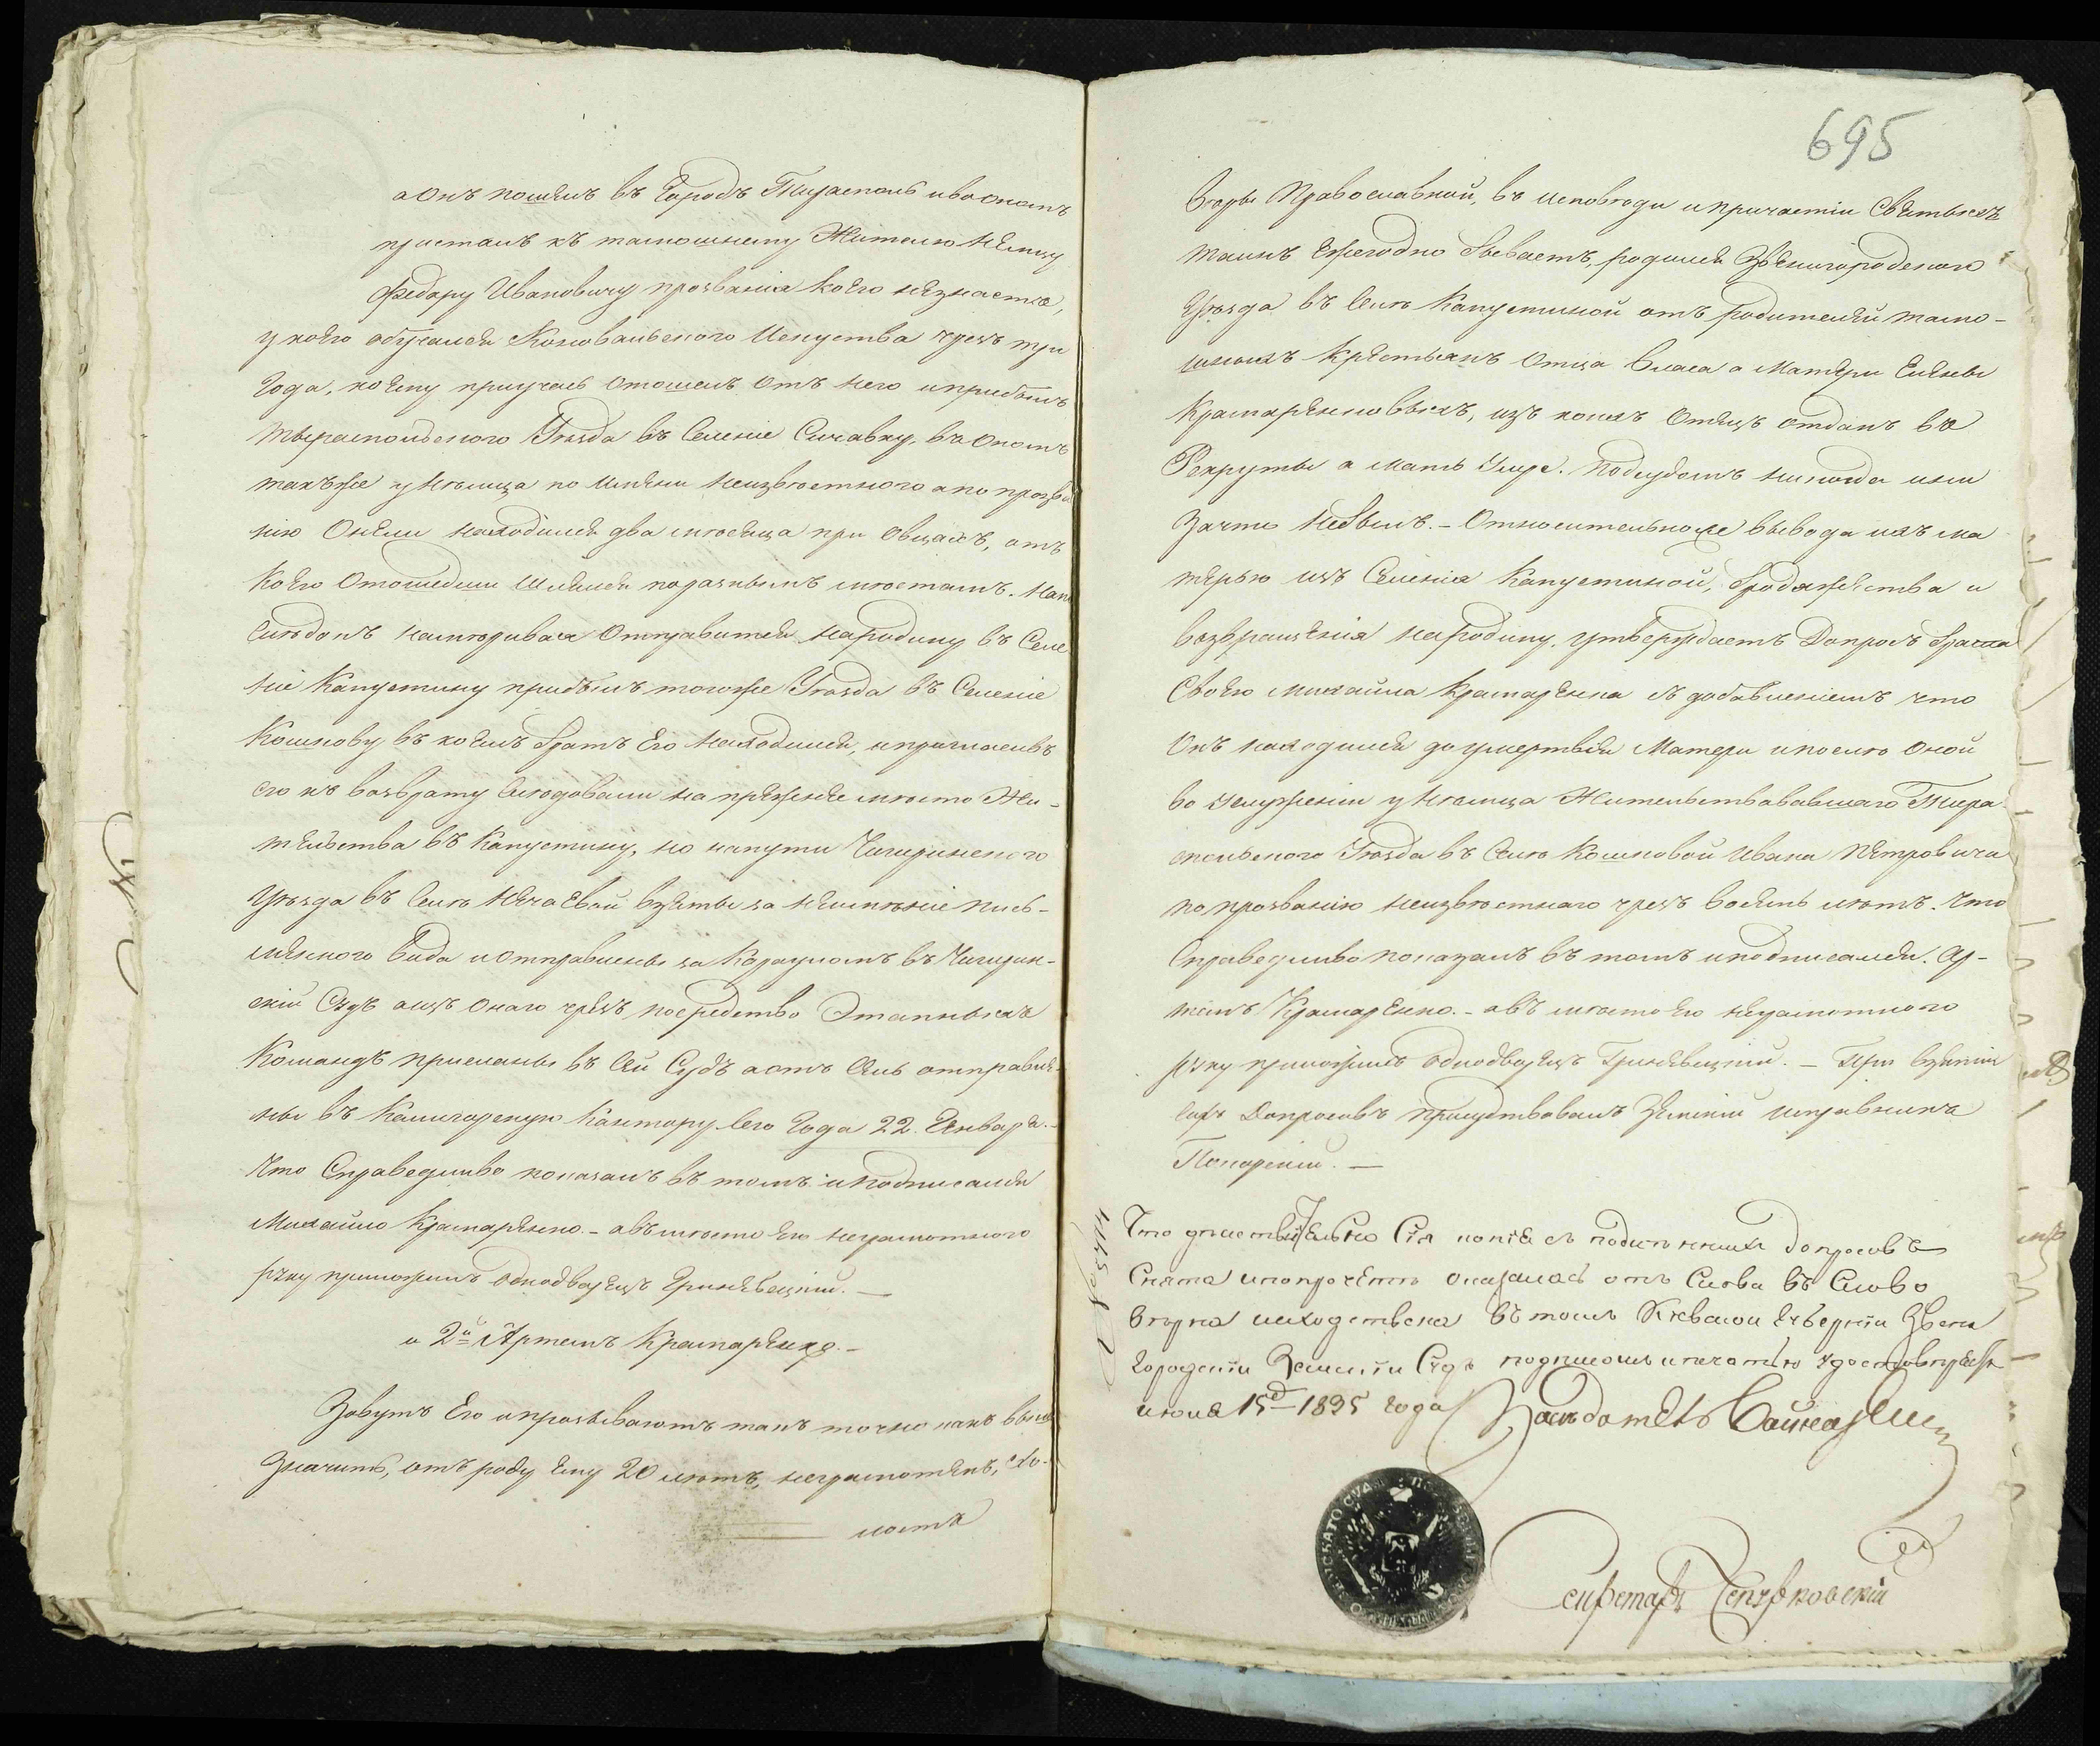 а онъ пошелъ въ Городъ Тирасполь и во ономъ
присталъ къ тамошнему Жителю Немцу
Федару Ивановичу прозванія коего незнаетъ,
у коего обучался Коновальского Искуства чрезъ три
Года, коему приучась отошелъ отъ него и прибылъ
Тыраспольского Уѣзда въ Селеніе Сичавку, въ ономъ
такъже у Нѣмца по имени неизвѣстного а по прозва
нію находился два мѣсяца при овцахъ, отъ
коего отошедши шлялся по разнымъ мѣстамъ. На по
слѣдокъ намѣреваясь отправится на родину въ Селе
ніе Капустину прибылъ тогоже Уѣзда въ Селеніе
Кошкову въ коемъ братъ его находился, и пригласивъ
его къ возврату слѣдовали на прежнее мѣсто Жи-
тельства въ Капустину, но на пути Чигиринского
Уѣзда въ селѣ Нечаевой взяты за неимѣніе пись-
меного вида и отправлены за Карауломъ въ Чигирин-
скій Судъ а изъ онаго чрезъ посредство Этапныхъ
Командъ присланы въ сей Судъ а отъ селъ отправле-
ны въ Кантору сего Года 22. Января.-
Что Справедливо показалъ въ томъ и подписался
Михайло Крамаренко.- а въ мѣсто его неграмотного
руку приложилъ Однодворецъ Гриневецкій.—
и 2й Артемъ Крамаренко.-
Зовутъ его и прозываютъ такъ точно какъ выше
значитъ, отъ роду ему 20 лѣтъ, неграмотенъ,
695
Вѣры Православной, въ исповѣди и причастіи Святыхъ
таинъ ежегодно бываетъ, родился Звенигородского
Уѣзда въ селѣ Капустиной отъ родителей тамо-
шнихъ крестьянъ отца Власа а Матери Елены
Крамаренковыхъ, изъ коихъ отецъ отданъ въ
Рекруты а мать умре. Подсудомъ никогда ни
зачто небылъ.- Относительноже вывода ихъ ма
терью изъ Селенія Капустиной, бродяжества и
возвращенія на родину утверждаетъ Допросъ брата
своего Михайла Крамаренка съ добавленіемъ что
онъ находился до умертвія Матери и послѣ оной
во услуженіи у Нѣмца Жительствовавшаго Тира
спольского Уѣзда въ селѣ Кошковой Ивана Петровича
по прозванію неизвѣстнаго чрезъ восемь лѣтъ. Что
Справедливо показалъ въ томъ и подписался. Ар-
темъ Крамаренко.- а въ мѣсто его неграмотного
руку приложилъ Однодворецъ Гриневецкій.— При взятіи
сихъ Допросовъ присутствовалъ Земскій исправникъ
Что дѣиствительно Сія копія съ подлѣнныхъ допросовъ
Снята и по прочетѣ оказалась отъ Слова въ Слово
вѣрна и сходственна въ томъ Кіевскои Губерніи Звени
городскіи Земскіи Судъ подписомъ и печатью удостовѣряетъ
июня 15д 1835 года
Секретарь